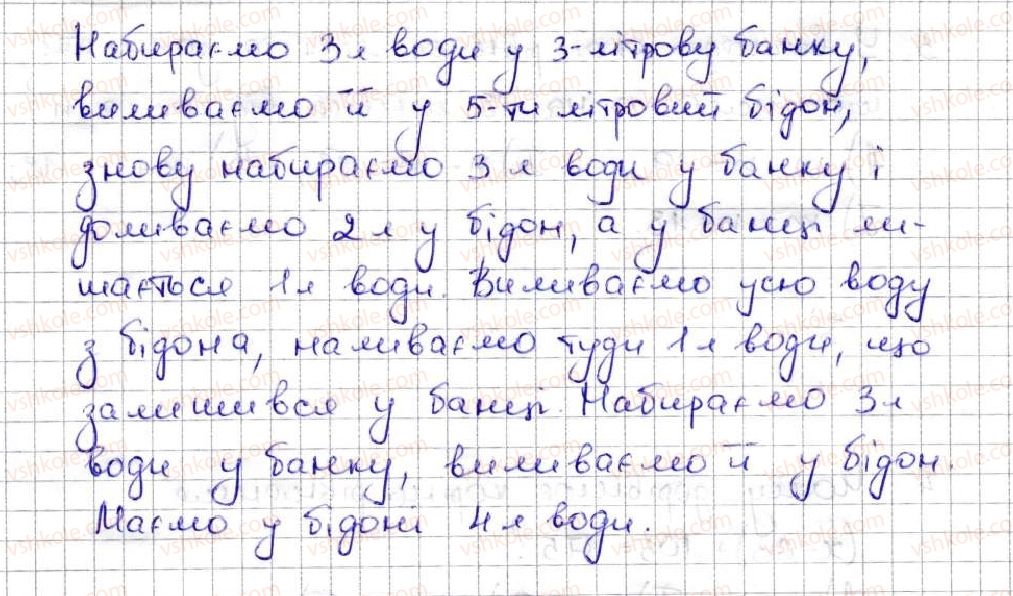 Набираємо 3 л води у 3-літрову банку,
виливаємо її у 5-ти літровий бідон,
знову набираємо 3 л води у банку і
доливаємо 2 л у бідон, а у банці ли-
шається 1 л води. Виливаємо усю воду
з бідона, наливаємо туди 1 л води, що
залишився у банці. Набираємо 3 л
води у банку, виливаємо її у бідон.
Маємо у бідоні 4 л води.
vshkole.com